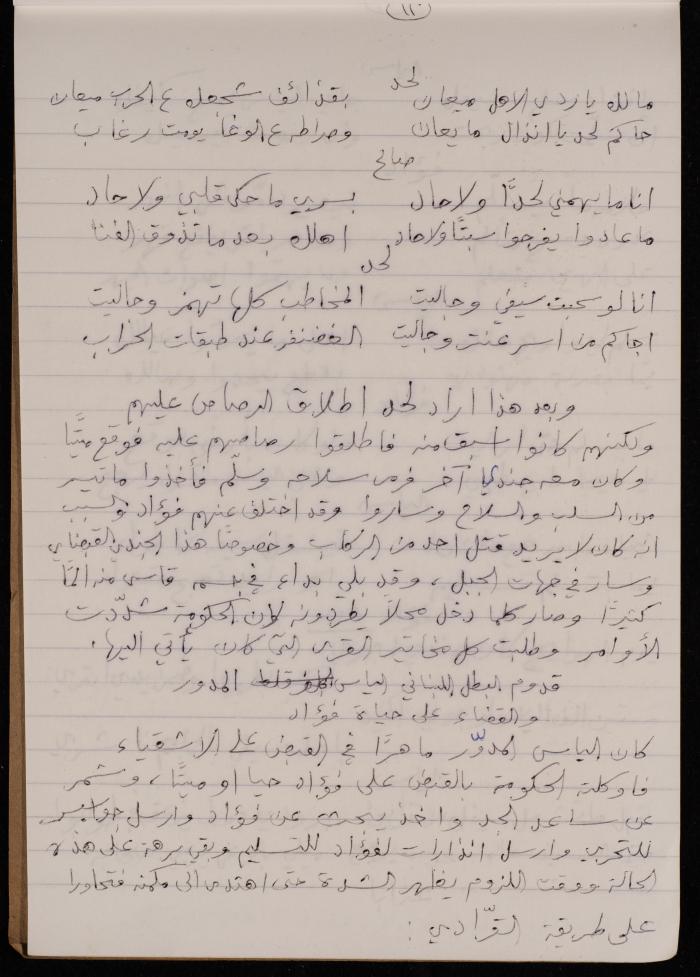 (١١٠)
لحد
مالك يا ردي الاهل ميعان بقذائف شجعله ع الحرب ميعان
جاكم لحد يا انذال ما يعان وصراطه ع الوغا يومت رغاب
صالح
انا ما يهمني لحدًا ولا حال بسري ما حكى قلبي ولا حاد
ما عادوا يفرجوا سبتًا ولا حاد اهلك بعد ما تذوق الفنا
لحد
انا لو سحبت سيفي وجاليت المخاطب كلها تهمز وجاليت
اجاكم من اسر عنتر وجاليت الغضنفر عند طبقات الحراب
وبعد هذا اراد لحد اطلاق الرصاص عليهم
ولكنهم كانوا اسبق منه فاطلقوا رصاصهم عليه فوقع ميتًا
وكان معه جندي آخر فرمى سلاحه وسلّم فأخذوا ما تيسر
من السلب والسلاح وساروا وقد اختلف عنهم فؤاد بسبب
انه كان لا يريد قتل احد من الركاب وخصوصًا هذا الجندي القبضاي
وسار في جهات الجبل، وقد بلي بداء في جسمه قاسى منه المًا
كثيرًا وصار كلما دخل محلاً يطردونه لان الحكومة شدّدت
الأوامر وطلبت كل مخاتير القرى التي كان يأتي اليها.
قدوم البطل اللبناني الياس المدور
والقضاء على حياة فؤاد
كان الياس المدوّر ماهرًا في القبض على الاشقياء
فاوكلته الحكومة بالقبض على فؤاد حيا او ميتًا، وشمر
عن ساعد الجد واخذ يبحث عن فؤاد وارسل جواسيس
للتحري وارسل انذارات لفؤاد للتسليم وبقي برهة على هذه
الحالة ووقت اللزوم يظهر الشدة حتى اهتدى الى مكمنه فتحاورا
على طريقة القرّادي :